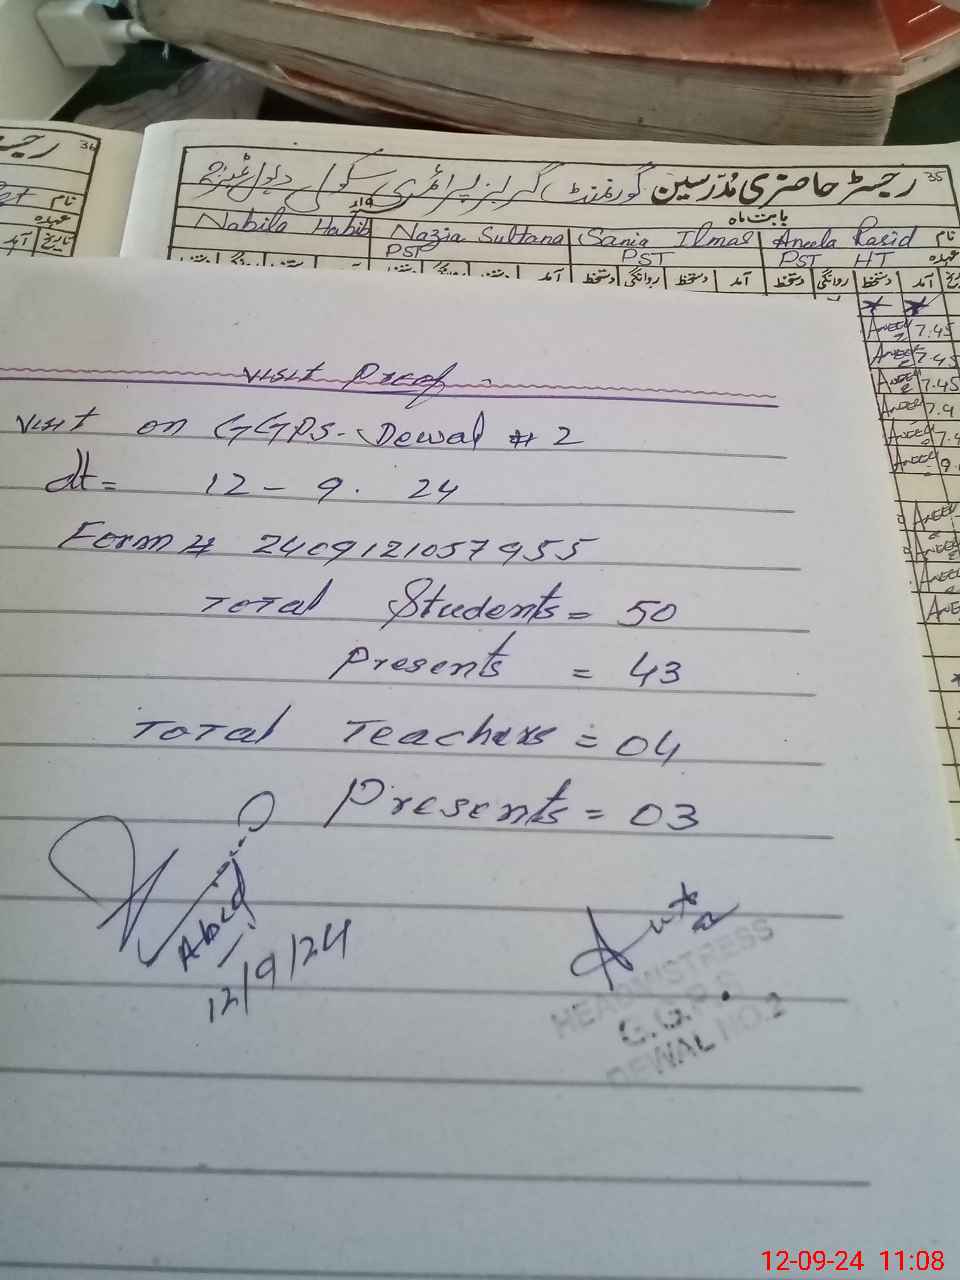 36
رجسٹر حاضری مدرسین گورنمنٹ گرلز پرائمری سکول دیول نمبر 2 35
بابت ماہ
نام Aneela Rasid Sania Ilmas Nazia Sultana Nabila Habib
عہدہ PST HT PST PST
تاریخ آمد دستخط روانگی دستخط آمد دستخط روانگی دستخط آمد
نام
عہدہ
تاریخ آمد
7.45
7.45
7.45
Visit Proof
Visit on GGPS-Dewal # 2
dt= 12-9.24
Form # 2409121057955
Total Students = 50
Presents = 43
Total Teachers = 04
Presents = 03
Abid
12/9/24
HEADMISTRESS
G.G.P.S
DEWAL NO.2
12-09-24 11:08